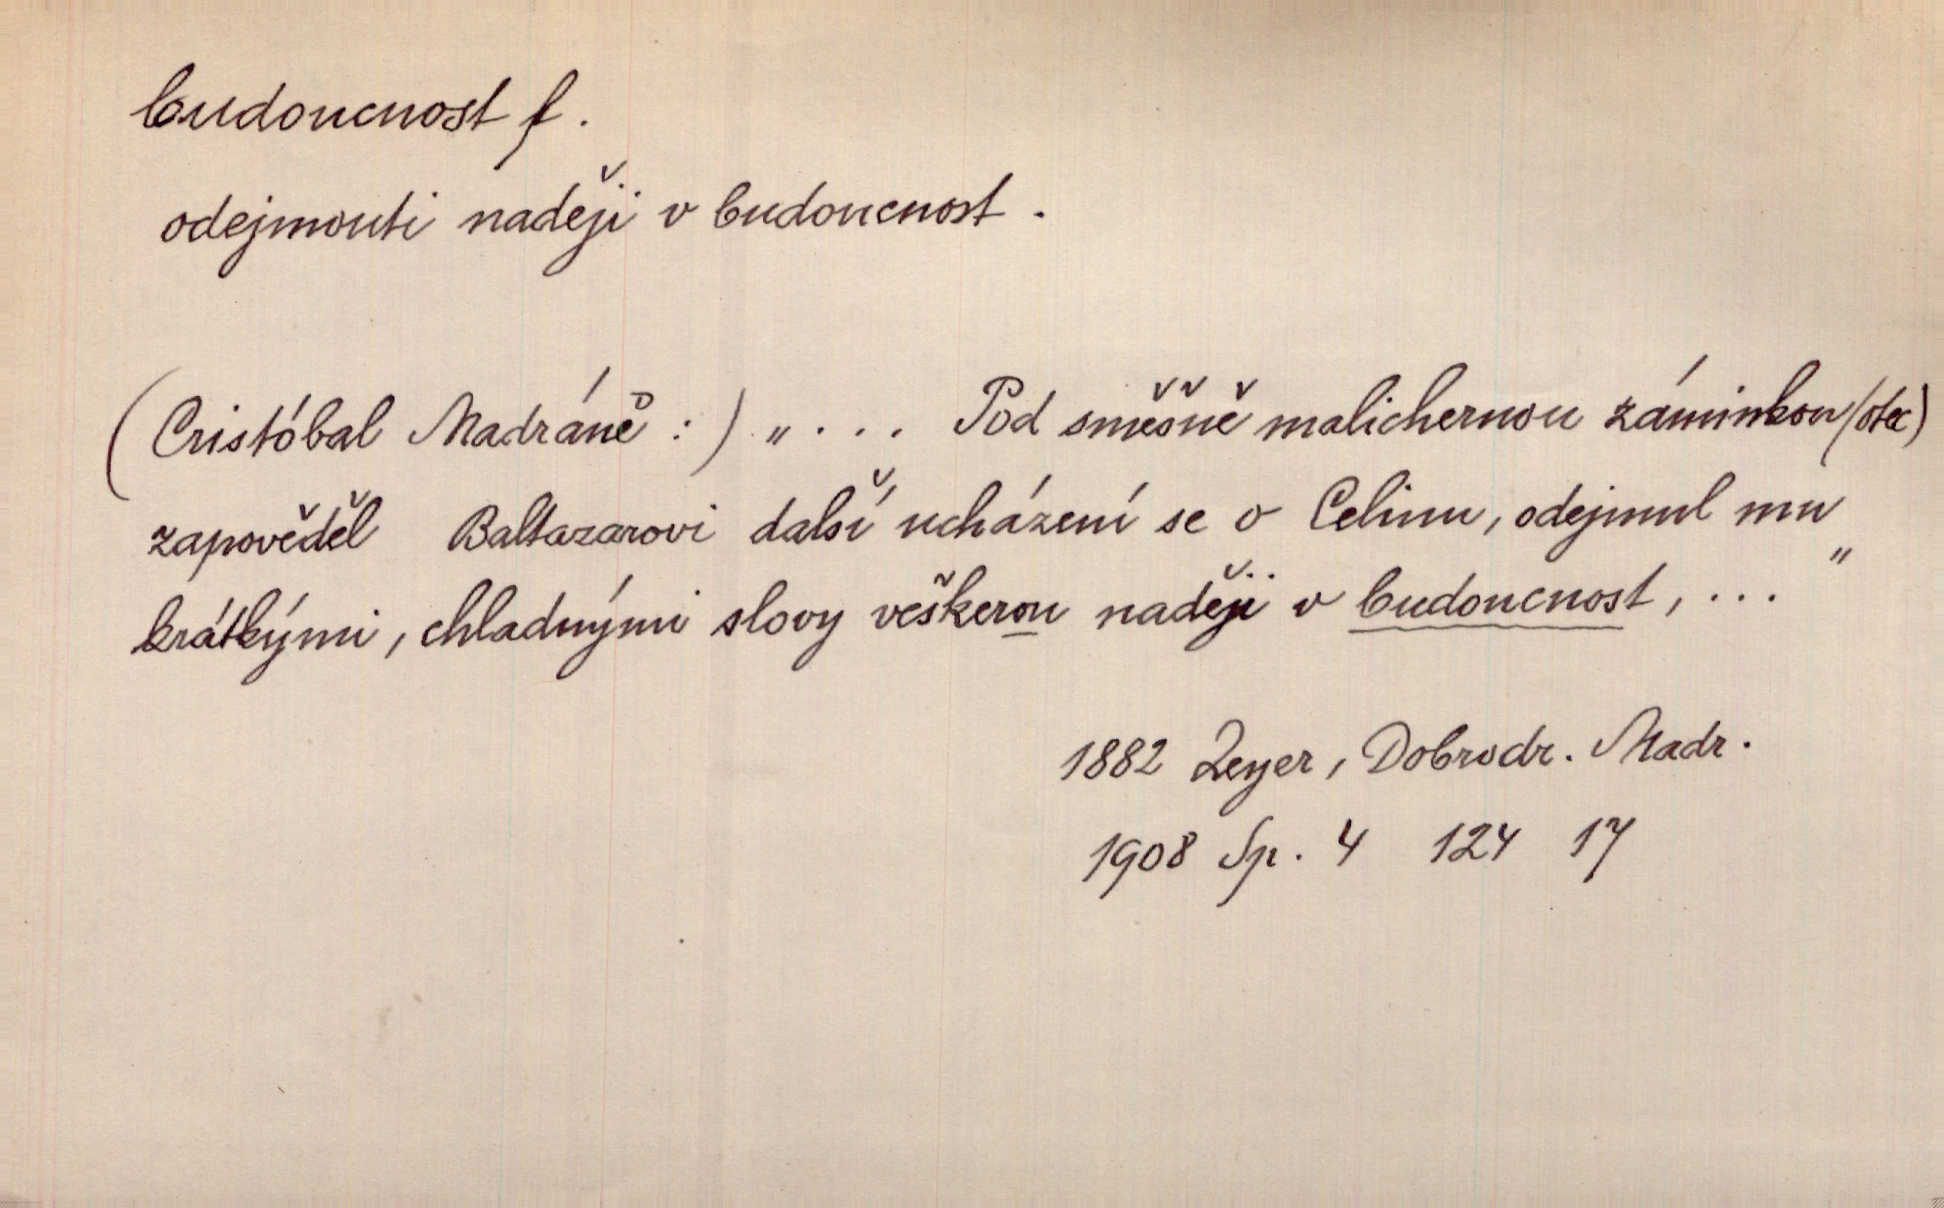 budoucnost f.
odejmouti naději v budoucnost.
(Cristóbal Madráně:) „... Pod směšně malichernou záminkou (otec)
zapověděl Baltazarovi další ucházení se o Celinu, odejmul mu
krátkými, chladnými slovy veškerou naději v budoucnost, ..."
1882 Zeyer, Dobrodr. Madr.
1908 Sp. 4 124 17